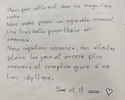 Merci pour cette nuit dans ce magnifique
cadre.
Nous avons passé un agréable moment.
Une très belle parenthèse en
amoureux.
Nous repartons ressourcés, des étoiles
plein les yeux et encore plus
amoureux et complices grâce à ce
lieu idyllique.
S et H